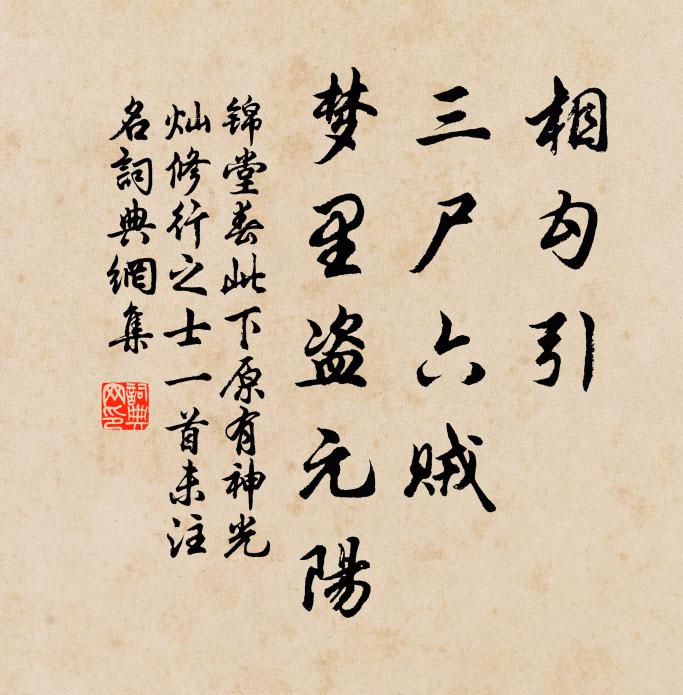 相勾引
三尸六贼
梦里盗元陽
锦堂春此下原有神光
灿修行之士一首未注
名詞典網集
詞典网印